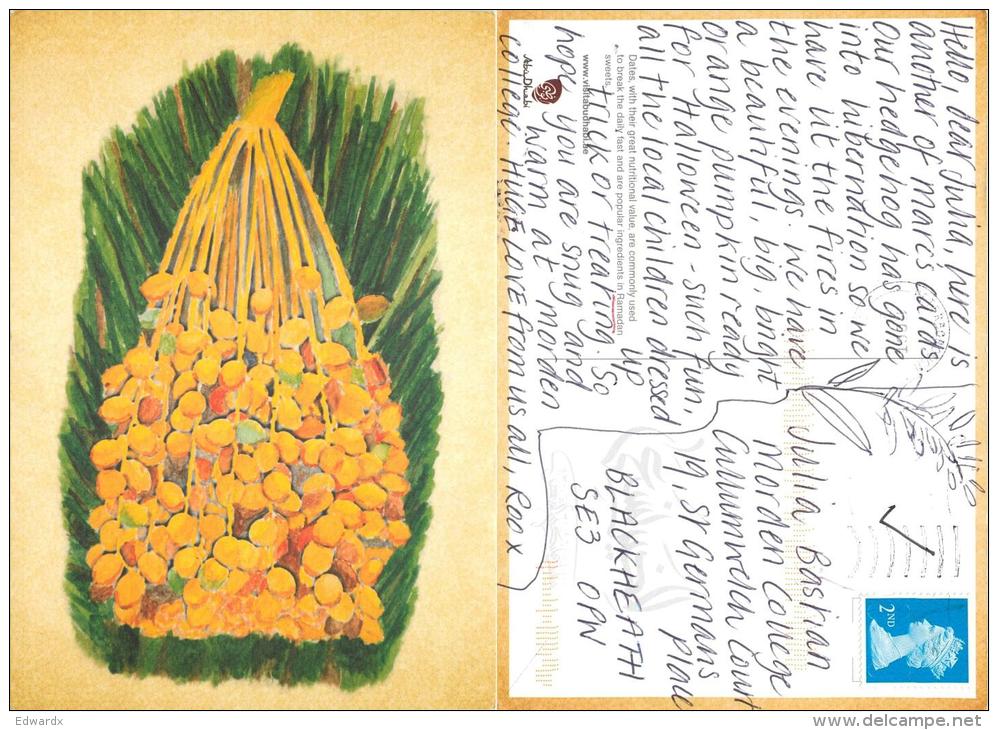 Hello, dear Julia, here is
another of marc's cards
Our hedgehog has gone
into hiberndtion so we
have lit the fires in
the evenings. We have
a beautiful, big, bright
orange pumpkin ready
for Hallowen - such fun,
all the local children dressed
up
trick or treating. So
hope you are snug and
warm at morden
college. HUGE LOVE from us all, Roo x
Dates, with their great nutritional value, are commonly used
to break the daily fast and are popular ingredients in Ramadan
sweets.
www.visitabudhabi.ae
Abu Dhabi
Julia Bastian
Morden College
Cullum Welch Court
19, St Germans
Place
BLACKHEATH
SE3 0PW
2ND
Edwardx
www.delcampe.net